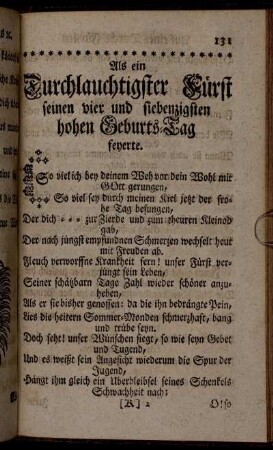 131
Als ein
Durchlauchtigster Fürst
seinen vier und siebenzigsten
hohen Geburts-Tag
feyerte.
So viel ich bey deinem Weh vor dein Wohl mit
GOtt gerungen,
So viel sey durch meinen Kiel jetzt der fro-
he Tag besungen,
Der dich = = = zur Zierde und zum theuren Kleinod
gab,
Der nach jüngst empfundnen Schmerzen wechselt heut
mit Freuden ab.
Fleuch verworffne Krankheit fern! unser Fürst ver-
jüngt sein Leben,
Seiner schätzbarn Tage Zahl wieder schöner anzu-
heben,
Als er sie bisher genossen: da die ihn bedrängte Pein,
Lies die heitern Sommer-Monden schmerzhaft, bang
und trübe seyn.
Doch seht! unser Wünschen siegt, so wie seyn Gebet
und Tugend,
Und es weißt sein Angesicht wiederum die Spur der
Jugend,
Hängt ihm gleich ein Uberbleibsel seines Schenkels
Schwachheit nach:
[K] 2
O! so